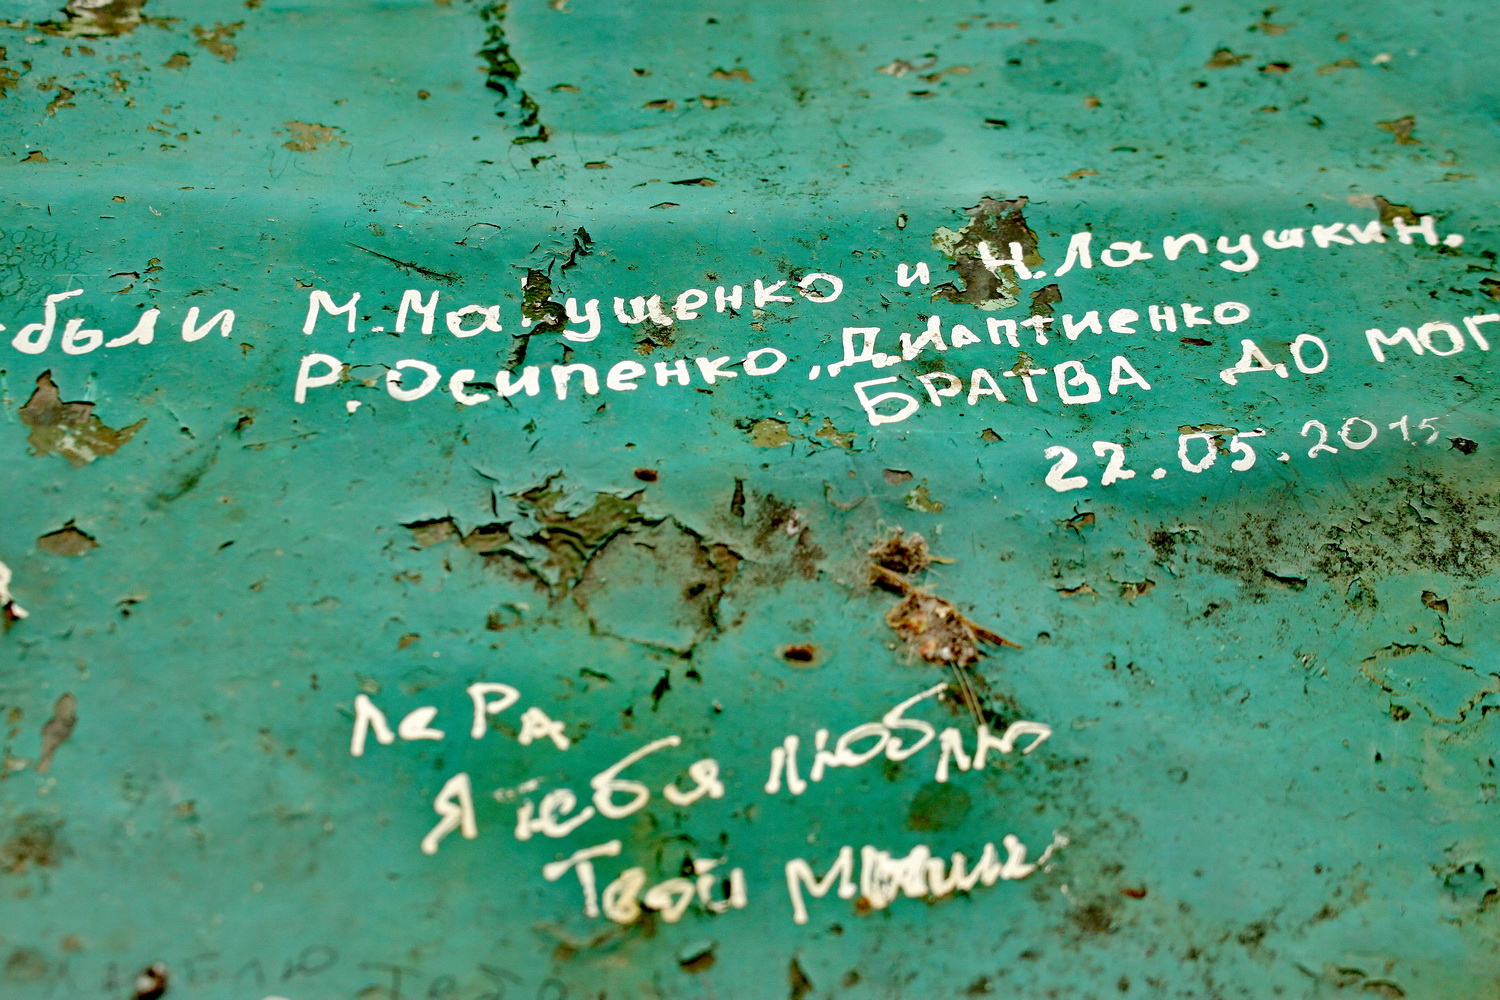 были М. и Н.Лапушкин.
Р.Осипенко,
БРАТВА ДО МОГ
22.05.2015
ЛеРа
Я тебя люблю
Твой